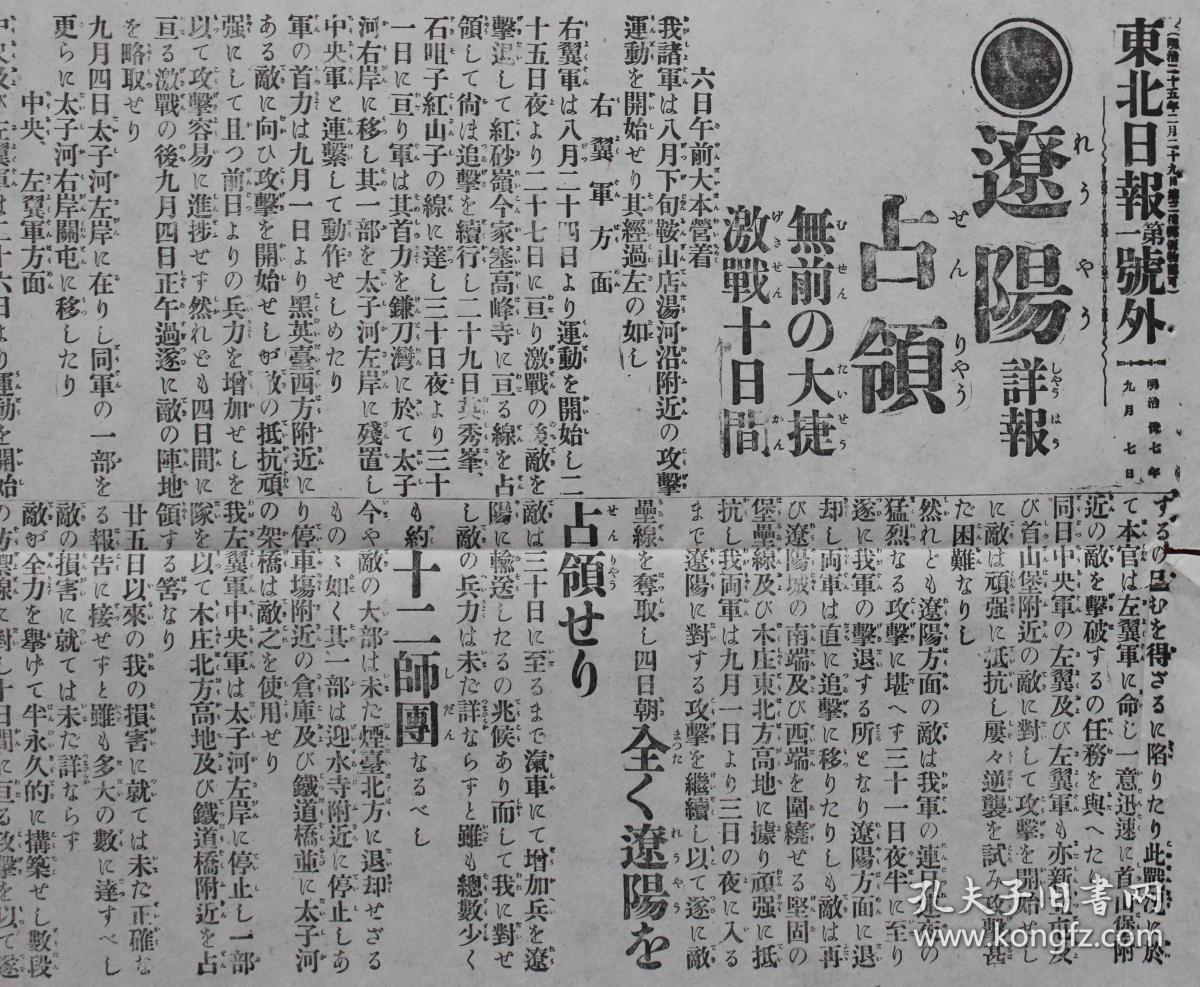 東北日報第一號外
明治卅七年
九月七日
遼陽
詳報
占領
無前の大捷
激戰十日間
六日午前大本營着
我諸軍は八月下旬鞍山店湯河沿附近の攻擊
運動を開始せり其經過左の如し
右翼軍方面
右翼軍は八月二十四日より運動を開始し二
十五日夜より二十七日に亘り激戰の後敵を
擊退して紅砂嶺今家塞高峰寺に亘る線を占
領して尙ほ追擊を續行し二十九日英秀峯、
石咀子紅山子の線に達し三十日夜より三十
一日に亘り軍は其首力を鎌刀灣に於て太子
河右岸に移し其一部を太子河左岸に殘置し
中央軍と連繫して動作せしめたり
軍の首力は九月一日より黑英臺西方附近に
ある敵に向ひ攻擊を開始せしが敵の抵抗頑
强にして且つ前日よりの兵力を增加せしを
以て攻擊容易に進捗せす然れとも四日間に
亘る激戰の後九月四日正午過遂に敵の陣地
を略取せり
九月四日太子河左岸に在りし同軍の一部を
更らに太子河右岸關屯に移したり
中央、左翼軍方面
するの已むを得ざるに陷りたり此戰
に於
て本官は左翼軍に命じ一意迅速に首山堡附
近の敵を擊破するの任務を與へたり
同日中央軍の左翼及び左翼軍も亦新立屯及
び首山堡附近の敵に對して攻擊を開始せし
に敵は頑强に抵抗し屢々逆襲を試み攻擊甚
だ困難なりし
然れども遼陽方面の敵は我軍の連日連夜の
猛烈なる攻擊に堪へす三十一日夜半に至り
遂に我軍の擊退する所となり遼陽方面に退
却し両車は直に追擊に移りたりしも敵は再
び遼陽城の南端及び西端を圍繞せる堅固の
堡壘線及び木庄東北方高地に據り頑强に抵
抗し我両軍は九月一日より三日の夜に入る
まで遼陽に對する攻擊を繼續し以て遂に敵
壘線を奪取し四日朝全く遼陽を
占領せり
敵は三十日に至るまで滊車にて增加兵を遼
陽に輸送したるの兆候あり而して我に對せ
し敵の兵力は未だ詳ならすと雖も總數少く
も約十二師團なるべし
今や敵の大部は未た煙臺北方に退却せざる
ものゝ如く其一部は迎水寺附近に停止しあ
り停車場附近の倉庫及び鐵道橋並に太子河
の架橋は敵之を使用せり
我左翼軍中央軍は太子河左岸に停止し一部
隊を以て木庄北方高地及び鐵道橋附近を占
領する筈なり
廿五日以來の我の損害に就ては未た正確な
る報告に接せすと雖も多大の數に達すべし
敵の損害に就ては未た詳ならす
敵が全力を擧けて半永久的に構築せし數段
孔夫子旧书网
www.kongfz.com